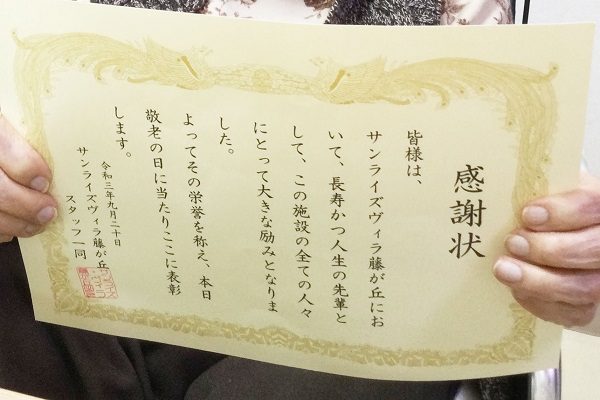 感謝状
皆様は、
サンライズヴィラ藤が丘にお
いて、長寿かつ人生の先輩と
して、この施設の全ての人々
にとって大きな励みとなりま
した。
よってその栄誉を称え、本日
敬老の日に当たりここに表彰
します。
令和三年九月二十日
サンライズヴィラ藤が丘
スタッフ一同